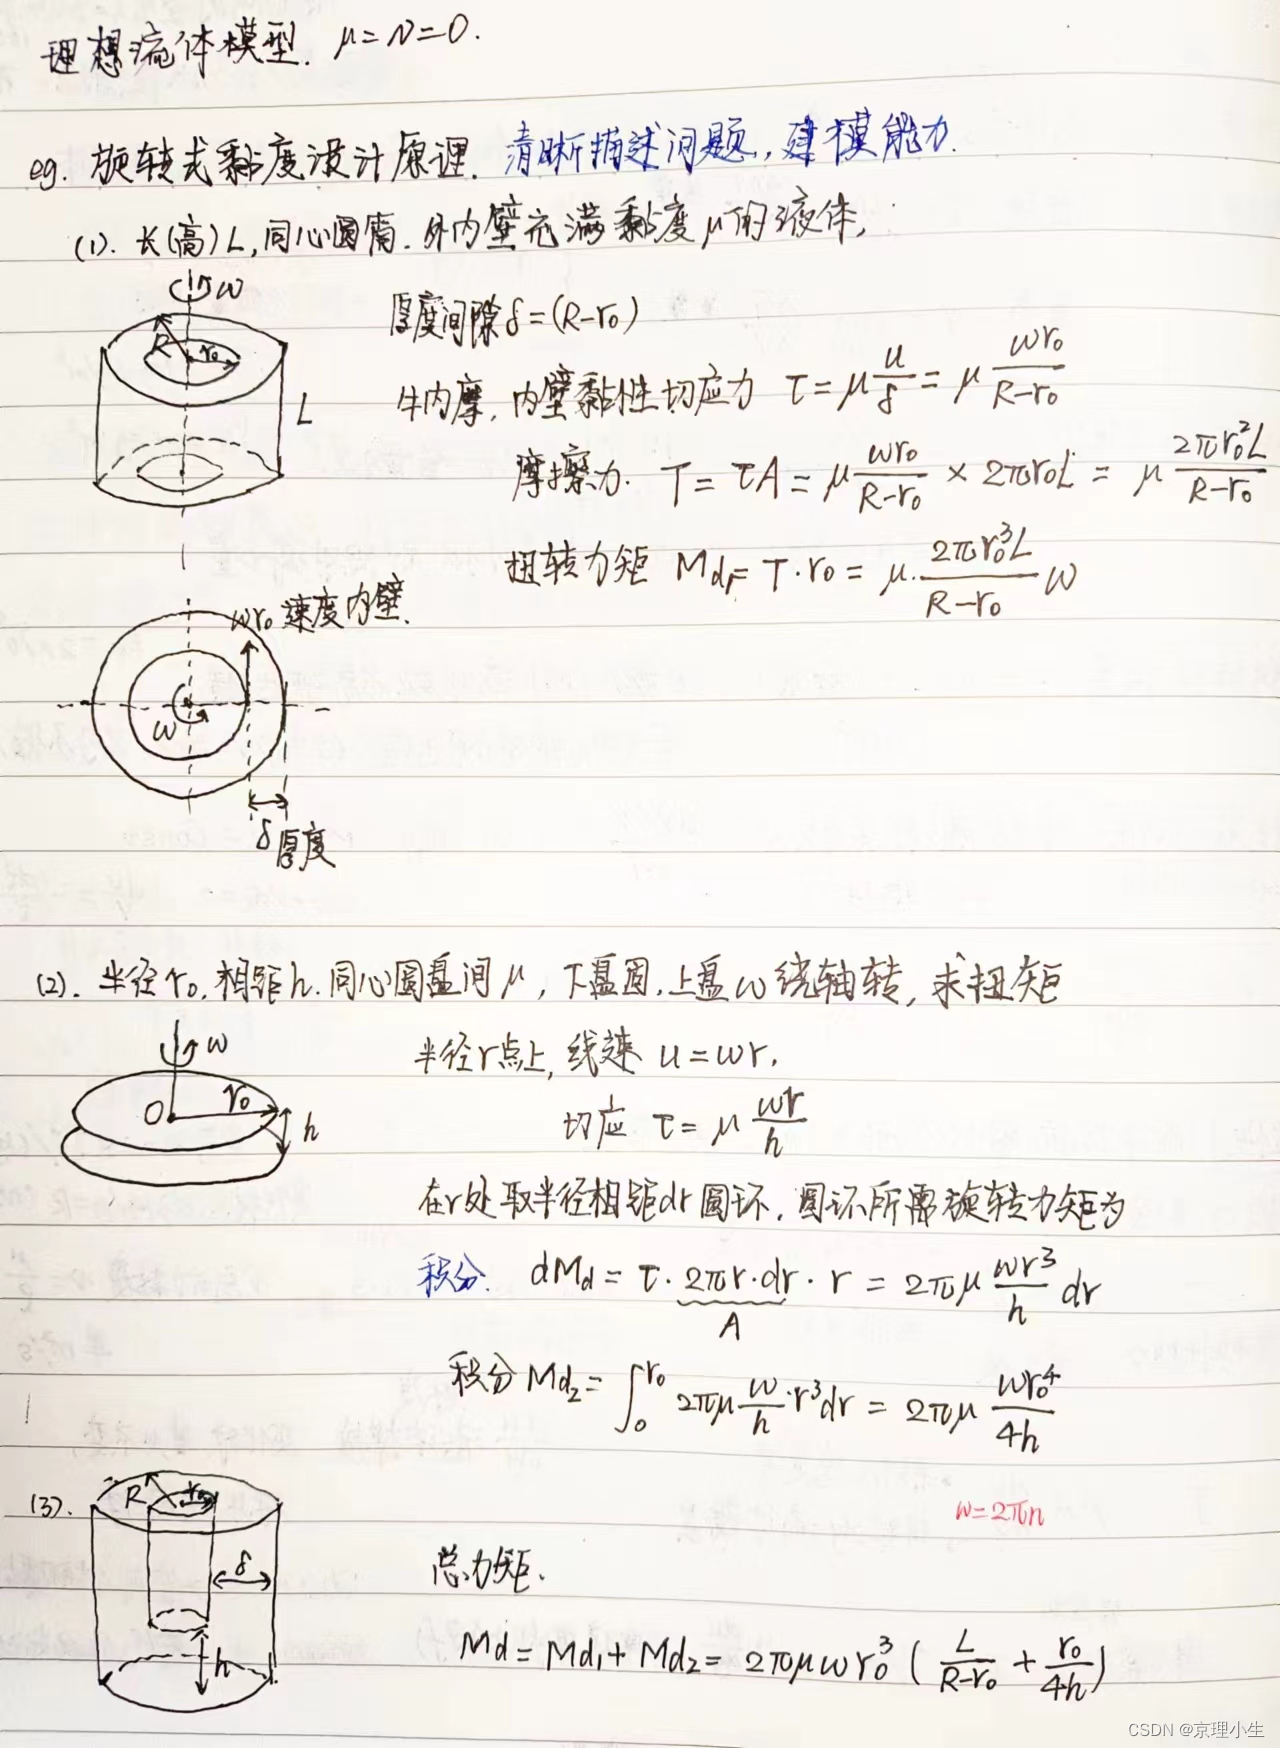 理想流体模型. μ=ν=0.
eg. 旋转式黏度设计原理. 清晰描述问题, 建模能力.
(1). 长(高)L, 同心圆筒. 外内壁充满黏度μ的液体,
ω
R r₀
L
厚度间隙δ=(R-r₀)
牛内摩, 内壁黏性切应力 τ=μ u/δ = μ ωr₀/(R-r₀)
摩擦力. T=τA=μ ωr₀/(R-r₀) × 2πr₀L = μ 2πr₀²L/(R-r₀)
扭转力矩 Md₁=T·r₀=μ· 2πr₀³L/(R-r₀) ω
ωr₀ 速度内壁.
ω
δ 厚度
(2). 半径r₀, 相距h. 同心圆盘间μ, 下盘固, 上盘ω绕轴转, 求扭矩
ω
O r₀
h
半径r点上, 线速 u=ωr,
切应 τ=μ ωr/h
在r处取半径相距dr圆环, 圆环所需旋转力矩为
积分. dMd=τ·2πr·dr·r=2πμ ωr³/h dr
A
积分 Md₂=∫₀^r₀ 2πμ ω/h·r³dr=2πμ ωr₀⁴/4h
(3).
R r₀
δ
h
ω=2πn
总力矩.
Md=Md₁+Md₂=2πμωr₀³(L/(R-r₀)+r₀/4h)
CSDN @京理小生